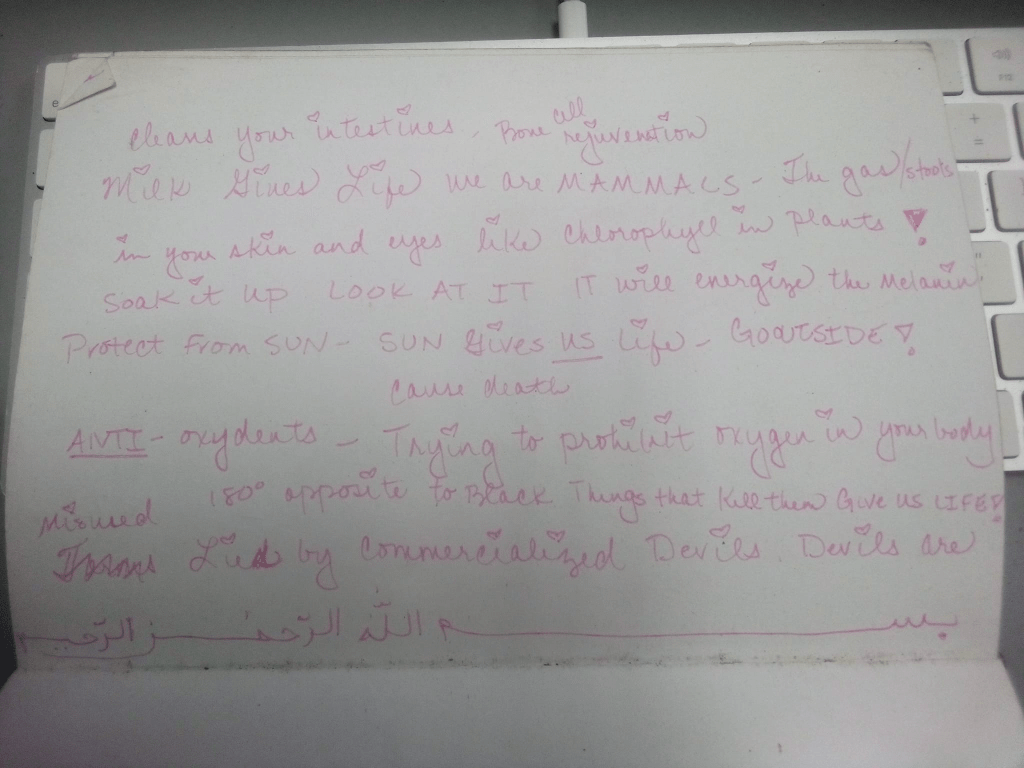 cleans your intestines. Bone cell rejuvenation
Milk Gives Life we are MAMMALS - The gas/stools
in your skin and eyes like chlorophyll in plants!
soak it up LOOK AT IT IT will energize the Melanin
Protect from SUN - SUN Gives US Life - GOOUTSIDE!
cause death
ANTI - oxydents - Trying to prohibit oxygen in your body
Misused 180° opposite to Black Things that kill them Give US LIFE!
Lied by commercialized Devils. Devils are
بسم الله الرّحمٰن الرّحيم